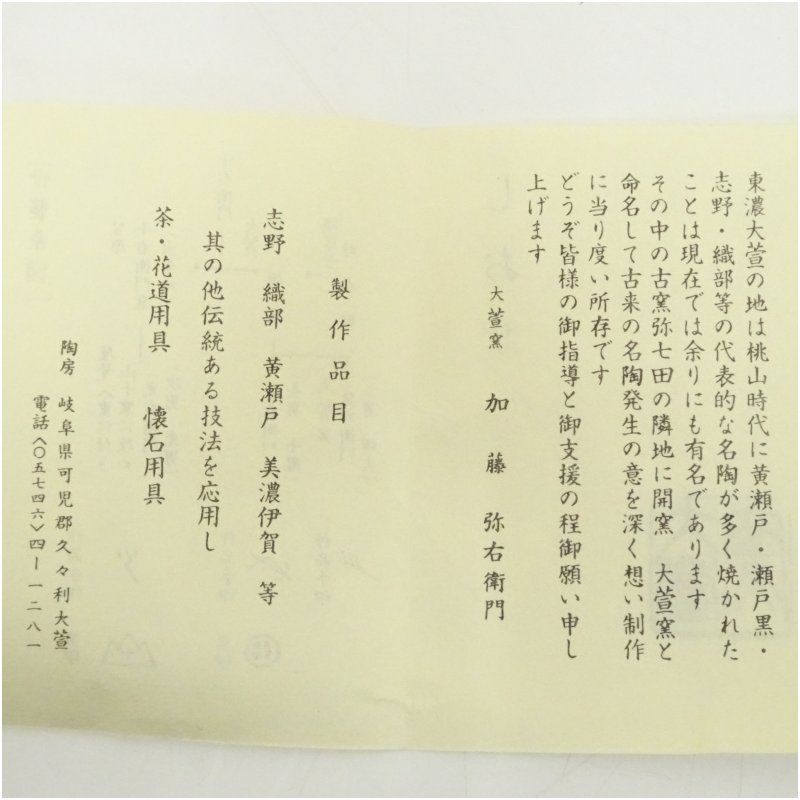 東濃大萱の地は桃山時代に黄瀬戸・瀬戸黒・
志野・織部等の代表的な名陶が多く焼かれた
ことは現在では余りにも有名であります
その中の古窯弥七田の隣地に開窯　大萱窯と
命名して古来の名陶発生の意を深く想い制作
に当り度い所存です
どうぞ皆様の御指導と御支援の程御願い申し
上げます
大萱窯　加藤弥右衛門
製作品目
志野　織部　黄瀬戸　美濃伊賀　等
其の他伝統ある技法を応用し
茶・花道用具　懐石用具
陶房　岐阜県可児郡久々利大萱
電話〈〇五七四六〉四ー一二八一